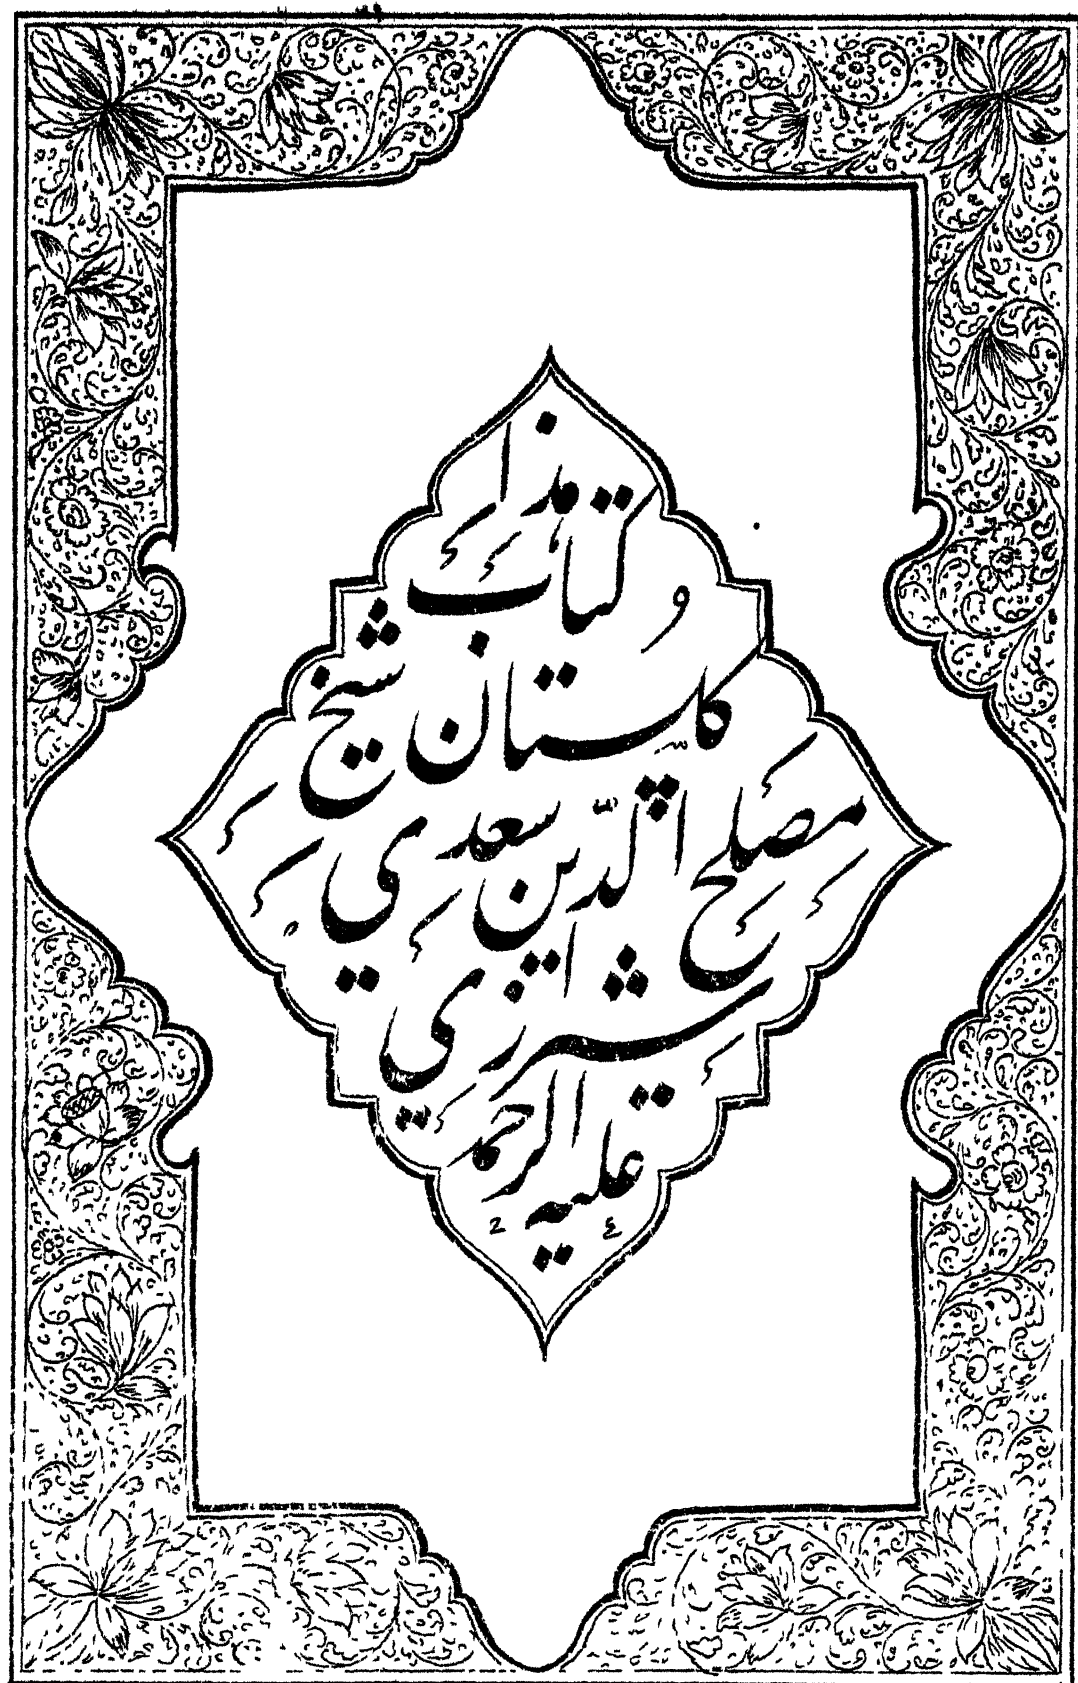 هذا
كتاب
گلستان شیخ
مصلح الدّین سعدی
شیرازی
علیه الرحمه